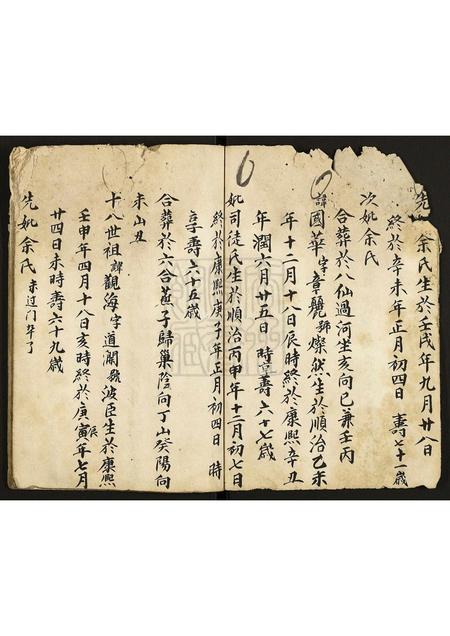 先妣余氏生於壬戌年九月廿八日
終於辛未年正月初四日 壽七十一歲
次妣余氏
合葬於八仙過河坐亥向巳兼壬丙
諱國華字章麗號燦然生於順治乙未
年十二月十八日辰時終於康熙辛丑
年潤六月廿五日 時享壽六十七歲
妣司徒氏生於順治丙申年十二月初七日
終於康熙庚子年正月初四日 時
享壽六十五歲
合葬於六合燕子歸巢陰向丁山癸陽向
未山丑
十八世祖諱觀海字道濶號波臣生於康熙
壬申年四月十八日亥時終於庚寅辰年七月
廿四日未時壽六十九歲
先妣余氏 未过门卒了